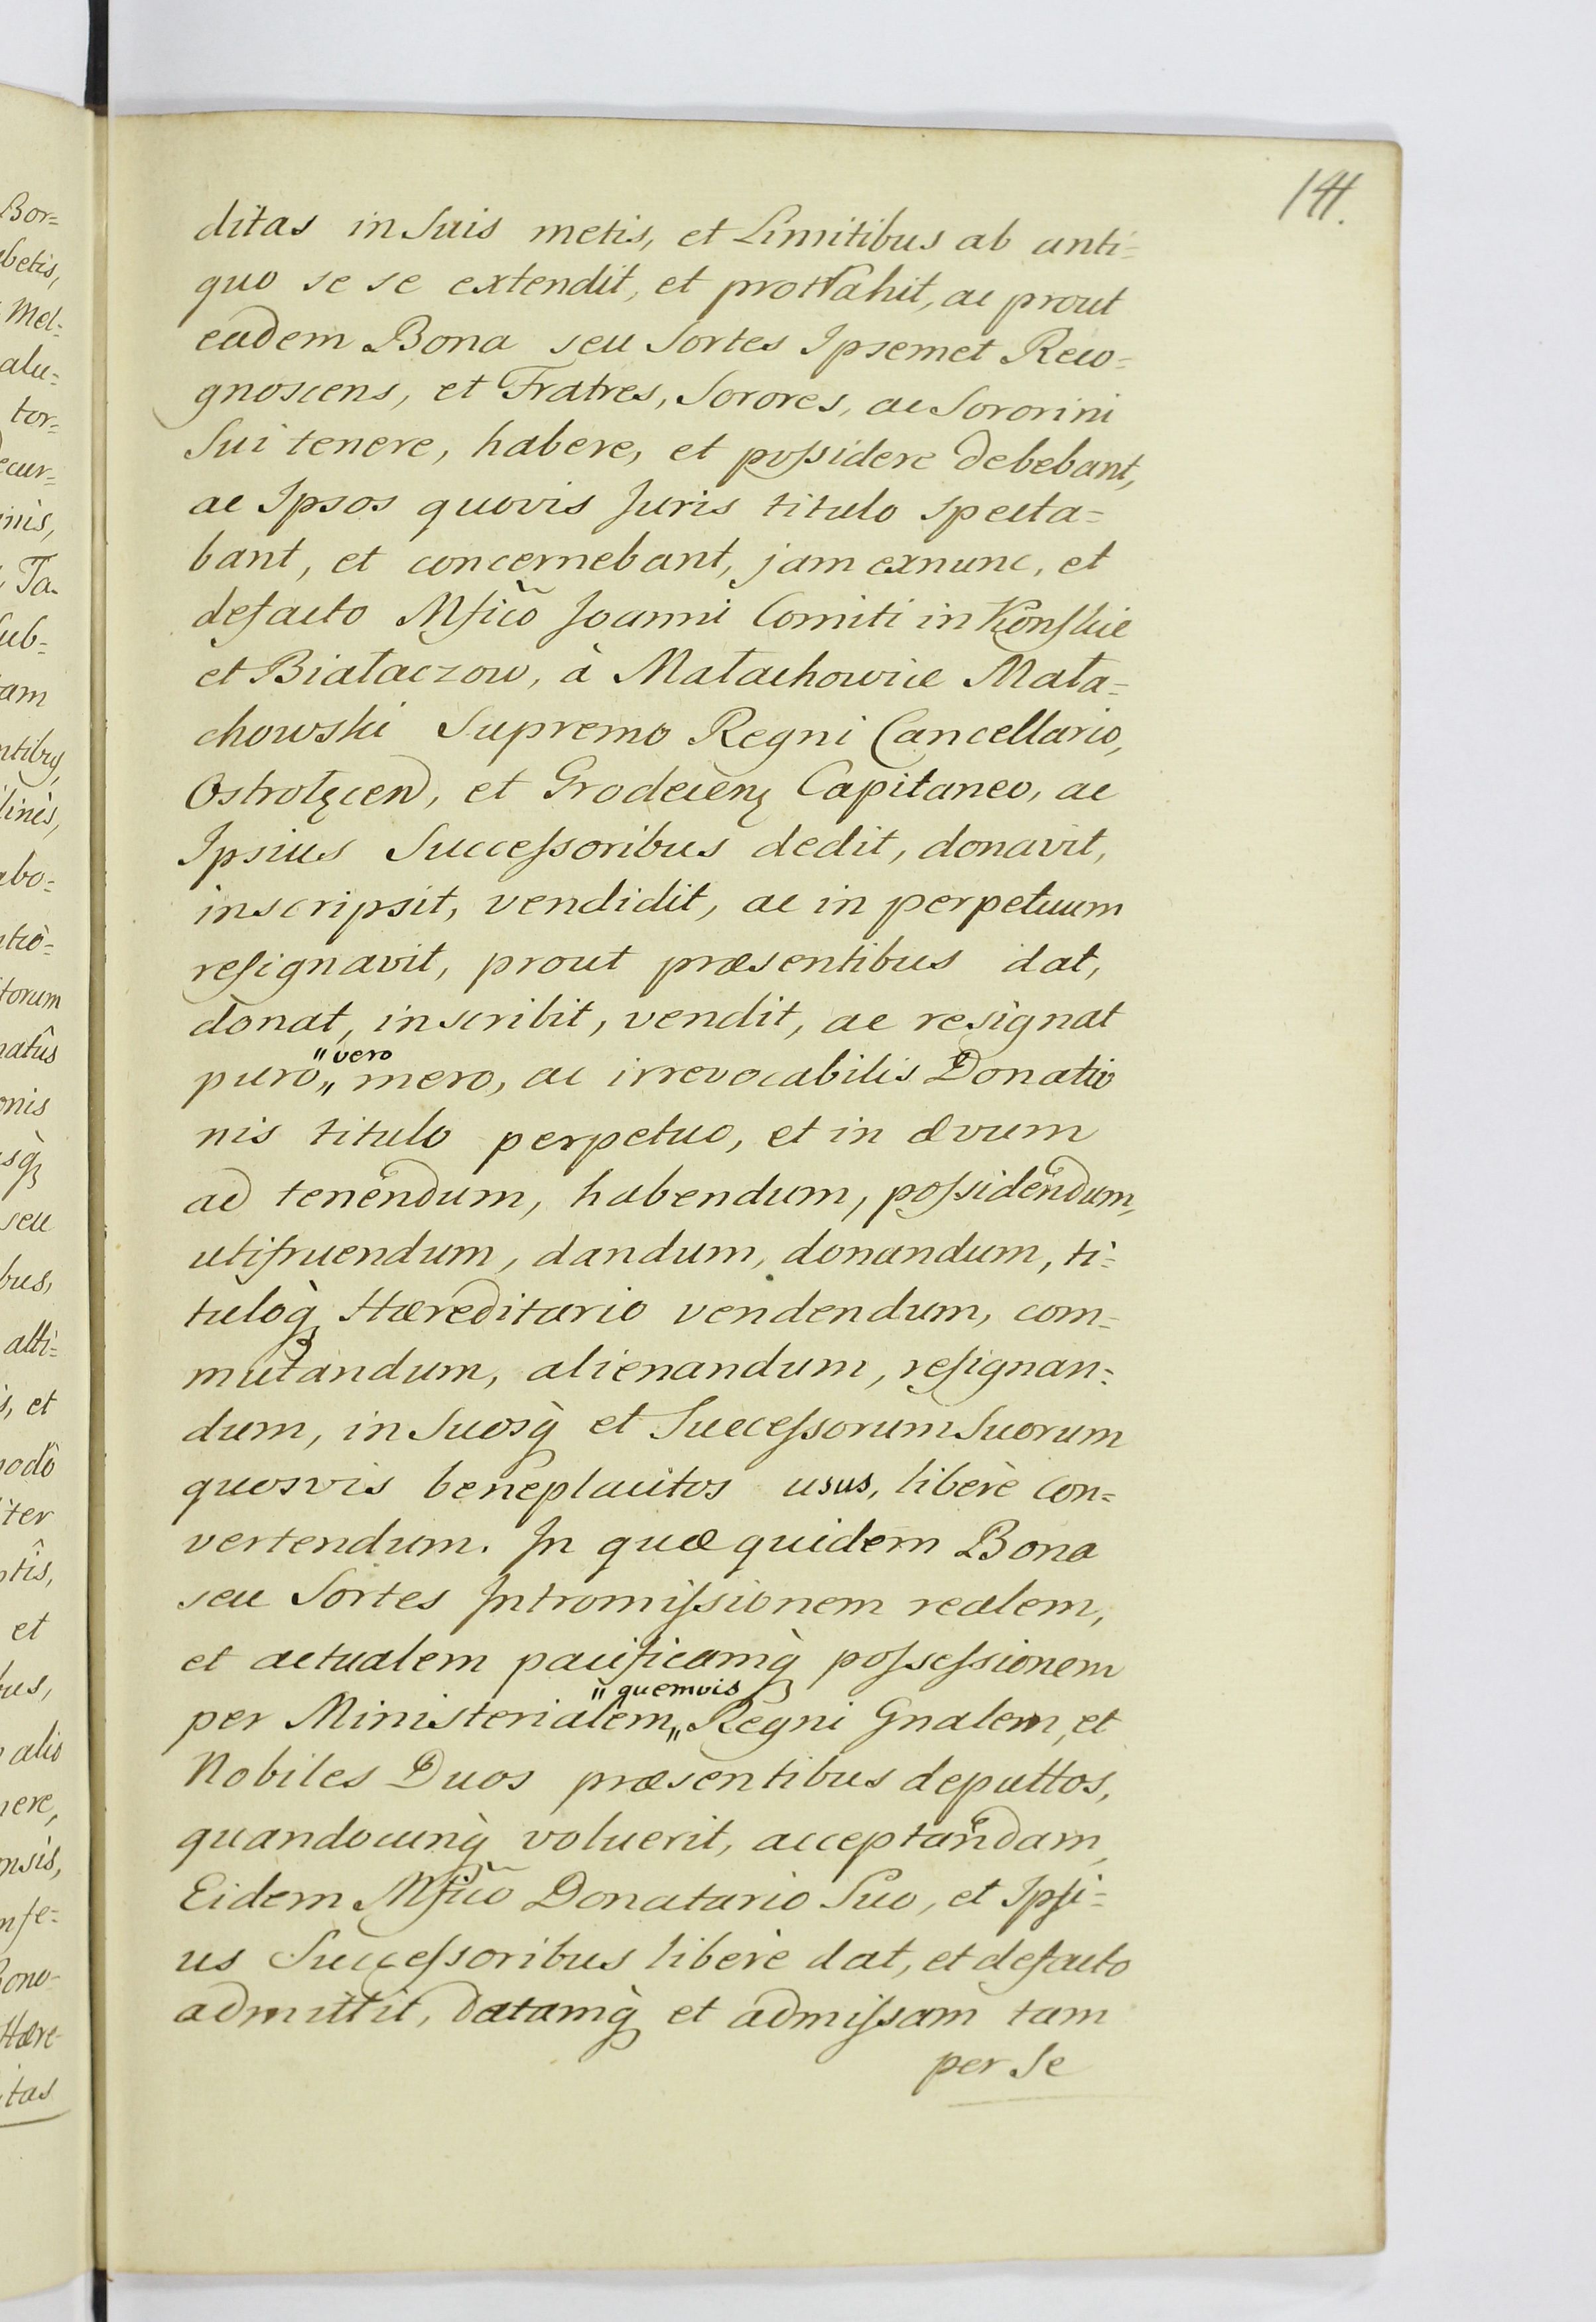 144.
ditas in Suis metis, et Limitibus ab anti=
quo se se extendit, et prottrahit, ac prout
eadem Bona seu Sortes Ipsemet Reco=
gnoscens, et Fratres, Sorores, ac Sororini
Sui tenere, habere, et poſsidere debebant,
ac Ipsos quovis Juris titulo specta=
bant, et concernebant, jam exnunc, et
defacto Mſico Joanni Comiti in Konſkie
et Białaczow, à Małachowice Mała=
chowski Supremo Regni Cancellario,
Ostrołęcen, et Grodecenſ Capitaneo, ac
Ipsius Succeſsoribus dedit, donavit,
inscripsit, vendidit, ac in perpetuum
reſignavit, prout præsentibus dat,
donat, inscribit, vendit, ac resignat
puro,, "vero mero, ac irrevocabilis Donatio
nis titulo perpetuo, et in ævum
ad tenendum, habendum, poſsidendum,
utifruendum, dandum, donandum, ti=
tuloq̀ Hæreditario vendendum, com=
mutandum, alienandum, reſignan=
dum, in Suosq̀ et Succeſsorum Suorum
quosvis beneplacitos usus, liberè con=
vertendum. In quæ quidem Bona
seu Sortes Intromiſsionem realem,
et actualem pacificamq̀ poſseſsionem
per Ministerialem,, "quemvis Regni Gnalem, et
Nobiles Duos præsentibus deputtos,
quandocunq̀ voluerit, acceptandam,
Eidem Mſico Donatario Suo, et Ipſi=
us Succeſsoribus liberè dat, et defacto
admittit, datamq̀ et admiſsam tam
per Se
Bor=
betis,
Mel=
alu=
tor=
ecur=
inis,
Ta=
Sub=
tam
ntibus,
linis,
abo=
ntio=
torum
natûs
onis
isq̀
seu
bus,
alti=
s, et
modo
iter
ntis,
et
bus,
alio
nere,
nsis,
nſe=
Bono=
Hære=
itas